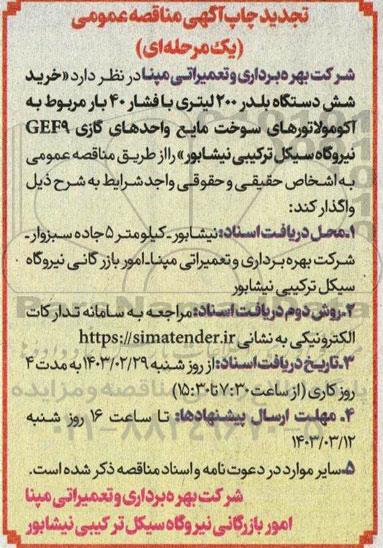 تجدید چاپ آگهی مناقصه عمومی
(یک مرحله‌ای)
شرکت بهره‌برداری و تعمیراتی مپنا در نظر دارد «خرید
شش دستگاه بلدر ۲۰۰ لیتری با فشار ۴۰ بار مربوط به
آکومولاتورهای سوخت مایع واحدهای گازی GEF۹
نیروگاه سیکل ترکیبی نیشابور» را از طریق مناقصه عمومی
به اشخاص حقیقی و حقوقی واجد شرایط به شرح ذیل
واگذار کند:
۱ـ محل دریافت اسناد: نیشابور ـ کیلومتر ۵ جاده سبزوار ـ
شرکت بهره‌برداری و تعمیراتی مپنا ـ امور بازرگانی نیروگاه
سیکل ترکیبی نیشابور
۲ـ روش دوم دریافت اسناد: مراجعه به سامانه تدارکات
الکترونیکی به نشانی https://simatender.ir
۳ـ تاریخ دریافت اسناد: از روز شنبه ۱۴۰۳/۰۲/۲۹ به مدت ۴
روز کاری (از ساعت ۷:۳۰ تا ۱۵:۳۰)
۴ـ مهلت ارسال پیشنهادها: تا ساعت ۱۶ روز شنبه
۱۴۰۳/۰۳/۱۲
۵ـ سایر موارد در دعوت نامه و اسناد مناقصه ذکر شده است.
شرکت بهره‌برداری و تعمیراتی مپنا
امور بازرگانی نیروگاه سیکل ترکیبی نیشابور